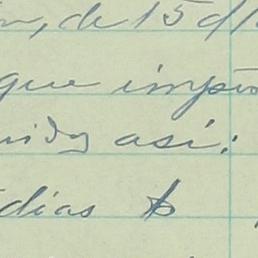 de 15 d
que impo
nidos así:
días $